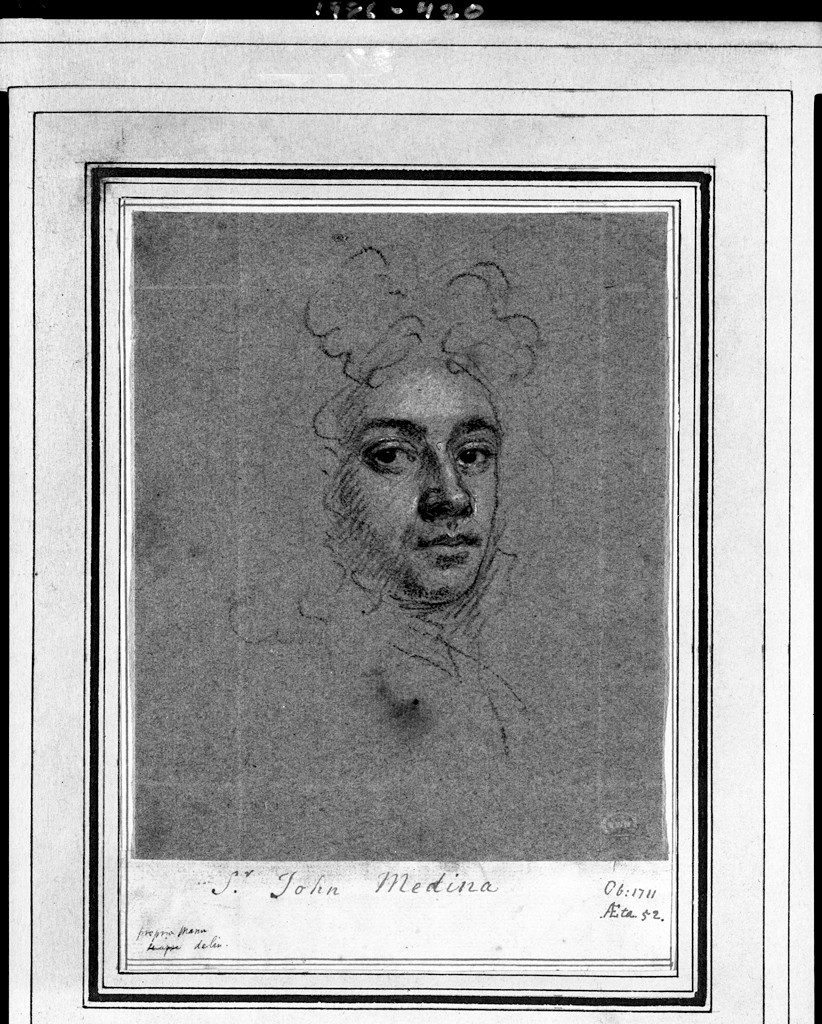 1986-420
Sr John Medina
Ob: 1711
Æta. 52.
propria Manu
delin.